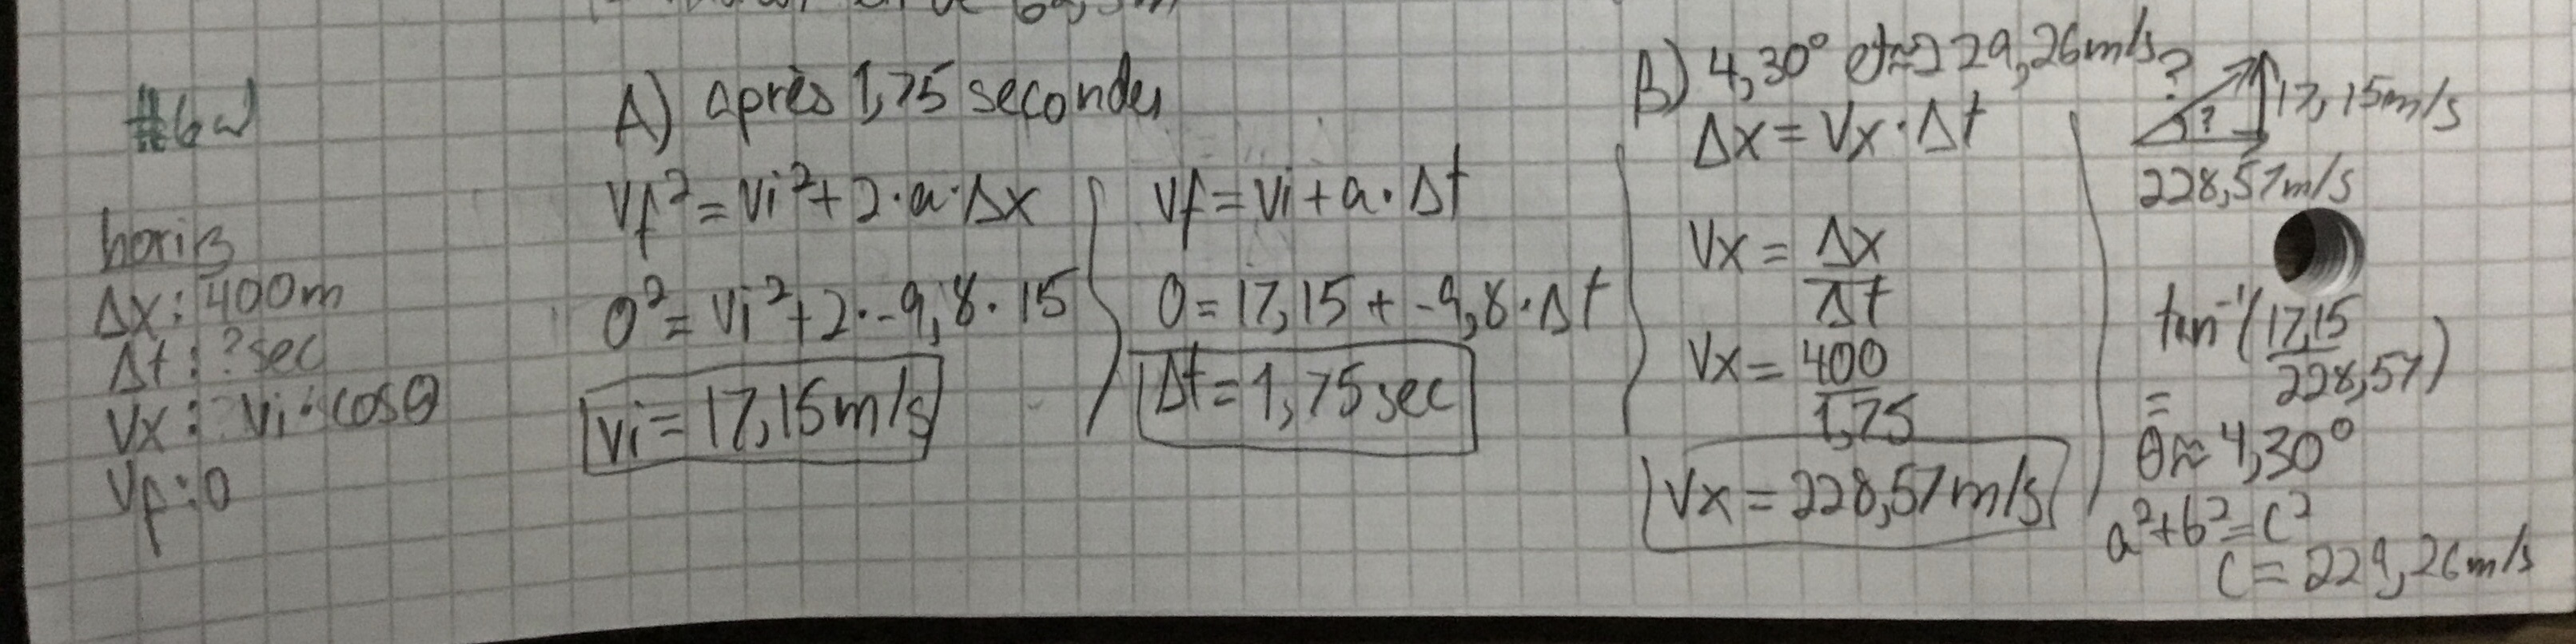 #6a)
horiz
Δx : 400m
Δt : ? sec
Vx : ? vi · cosθ
Vf : 0
A) après 1,75 secondes
Vf² = Vi² + 2·a·Δx
0² = Vi² + 2·-9,8·15
Vi = 17,15 m/s
Vf = Vi + a·Δt
0 = 17,15 + -9,8·Δt
Δt = 1,75 sec
B) 4,30° et ≈ 229,26 m/s
Δx = Vx · Δt
Vx = Δx
Δt
Vx = 400
1,75
Vx = 228,57 m/s
?
17,15 m/s
?
228,57 m/s
tan⁻¹(17,15
228,57)
=
θ ≈ 4,30°
a² + b² = c²
c = 229,26 m/s